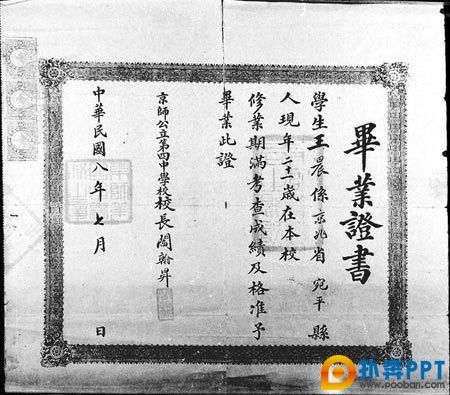 畢業證書
學生王晨係京兆省宛平縣
人現年二十一歲在本校
修業期滿考查成績及格准予
畢業此證
京師公立第四中學校校長閻翰昇
中華民國八年七月 日
扑奔PPT
www.pooban.com